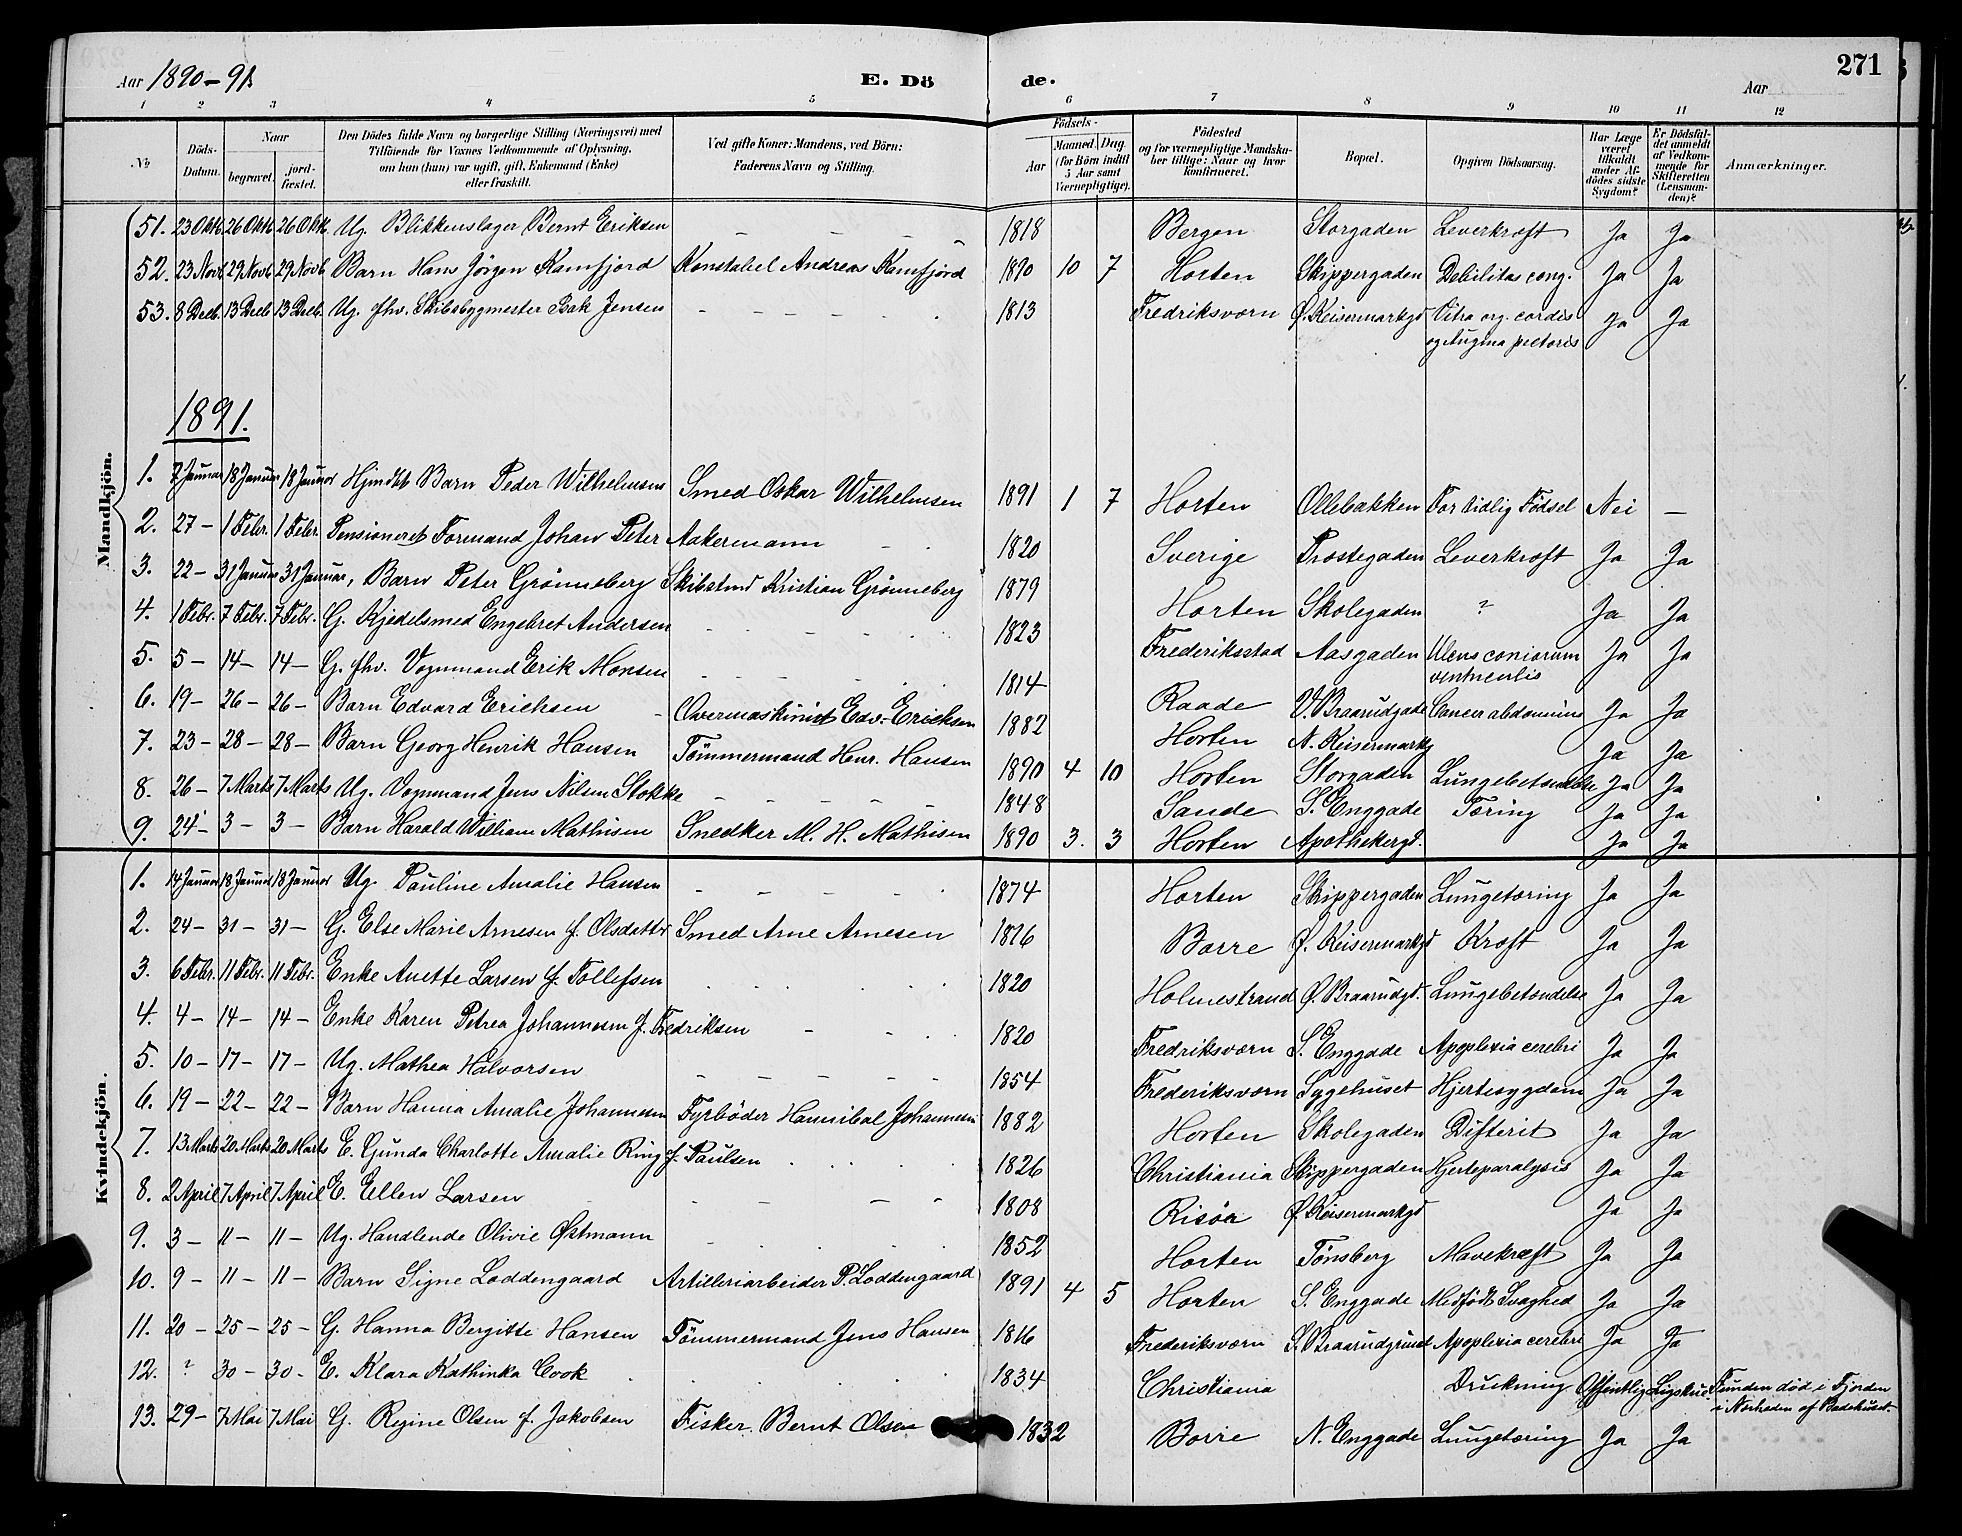 Aar 1890-91. E. Dö de. Aar 271
1 2 3 4 5 6 7 8 9 10 11 12
No. Döds-Datum. Naar begravet. jord-fæstet. Den Dödes fulde Navn og borgerlige Stilling (Næringsvei) med Tilföiende for Voxnes Vedkommende af Oplysning, om han (hun) var ugift, gift, Enkemand (Enke) eller fraskilt. Ved gifte Koner: Mandens, ved Börn: Faderens Navn og Stilling. Födsels- Aar Maaned. Dag (for Börn indtil 5 Aar samt Værnepligtige). Födested og for værnepligtige Mandskaber tillige: Naar og hvor konfirmeret. Bopæl. Opgiven Dödsaarsag. Har Læge været tilkaldt under Afdödes sidste Sygdom? Er Dödsfaldet anmeldt af Vedkommende for Skifteretten (Lensmanden)? Anmærkninger.
Mandkjön.
51. 23 Oktb. 26 Oktb. 26 Oktb. Ug. Blikkenslager Bernt Eriksen - - - - 1818 Bergen Storgaden Leverkræft Ja Ja
52. 23 Novb. 29 Novb. 29 Novb. Barn Hans Jörgen Kamfjord Konstabel Andreas Kamfjord 1890 10 7 Horten Skippergaden Debilitas cong. Ja Ja
53. 8 Decb. 13 Decb 13 Decb. Ug. fhv. Skibsbygmester Isak Jensen - - - - 1813 Fredriksværn Ø. Keisermarkgd Vitra org. cordis Ja Ja
og Angina pectoris
1891.
1. 7 Januar 18 Januar 18 Januar Hjmdbt Barn Peder Wilhelmsen Smed Oskar Wilhelmsen 1891 1 7 Horten Ollebakken For tidlig Födsel Nei -
2. 27 - 1 Febr. 1 Febr. Pensioneret Formand Johan Peter Aakermann - . 1820 Sverige Prostegaden Leverkræft Ja Ja
3. 22 - 31 Januar 31 Januar, Barn Peter Grönneberg Skibstmd Kristian Grönneberg 1879 Horten Skolegaden ? Ja Ja
4. 1 Febr. 7 Febr. 7 Febr. G. Kjedelsmed Engebret Andersen 1823 Frederiksstad Aasgaden Ulcus Ja Ja
ventriculis
5. 5 - 14 - 14 - G. fhv. Vognmand Erik Monsen 1814 Raade V. Braarudgade Cancer abdominis Ja Ja
6. 19 - 26 - 26 - Barn Edvard Erichsen - Overmaskinist Edv. Erichsen 1882 Horten N. Keisermarkg Ja Ja
7. 23 - 28 - 28 - Barn Georg Henrik Hansen Tömmermand Henr. Hansen 1890 4 10 Horten Storgaden Lungebetændelse Ja Ja
8. 26 - 7 Marts 7 Marts Ug. Vognmand Jens Nilsen Stokke - - - - 1848 Sande S. Enggade Tæring Ja Ja
9. 24 - 3 - 3 - Barn Harald William Mathisen Snedker M. H. Mathisen 1890 3. 3 Horten Apothekergd. Ja Ja
Kvindekjön.
1. 14 Januar 18 Januar 18 Januar Ug. Pauline Amalie Hansen - - - - 1874 Horten Skippergaden Lungetæring Ja Ja
2. 24 - 31 - 31 - G. Else Marie Arnesen f. Olsdatter Smed Arne Arnesen 1816 Borre Ø. Keisermarkgd Kræft Ja Ja
3. 6 Febr. 11 Febr. 11 Febr. Enke Anette Larsen f. Tollefsen 1820 Holmestrand Ø. Braarudgd. Lungebetændelse Ja Ja
4. 4 - 14 - 14 - Enke Karen Petrea Johannesen f. Fredriksen - - . 1820 Fredriksværn S. Enggade Apoplexia cerebri Ja Ja
5. 10 - 17 - 17 - Ug. Mathea Halvorsen - - - - - 1854 Frederiksværn Sygehuset Hjertesygdom Ja Ja
6. 19 - 22 - 22 - Barn Hanna Amalie Johannesen Fyrböder Hannibal Johannesen 1882 Horten Skolegaden Difterit Ja Ja
7. 13 Marts 20 Marts 20 Marts E. Gunda Charlotte Amalie Ring f. Paulsen 1826 Christiania Skippergaden Hjerteparalysis Ja Ja
8. 2 April 7 April 7 April E. Ellen Larsen - - - - 1808 Risör Ø. Keisermarkgd Ja Ja
9. 3 - 11 - 11 - Ug. Handlende Olivie Østmann 1852 Horten Tönsberg Mavekræft Ja Ja
10. 9 - 11 - 11 - Barn Signe Loddengaard Artilleriarbeider P. Loddengaard 1891 4 5 Horten S. Enggade Medfödt Svaghed Ja Ja
11. 20 - 25 - 25 - G. Hanna Bergitte Hansen Tömmermand Jens Hansen 1816 Frederiksværn S. Braarudgrund Apoplexia cerebri Ja Ja
12. ? 30 - 30 - E. Klara Kathinka Cook 1834 Christiania Drukning Offentlig Ligskue Funden död i Fjorden
i Nærheden af Badehuset.
13. 29 - 7 Mai 7 Mai G. Regine Olsen f. Jakobsen Fisker Bernt Olsen 1832 Borre N. Enggade Lungetæring Ja Ja